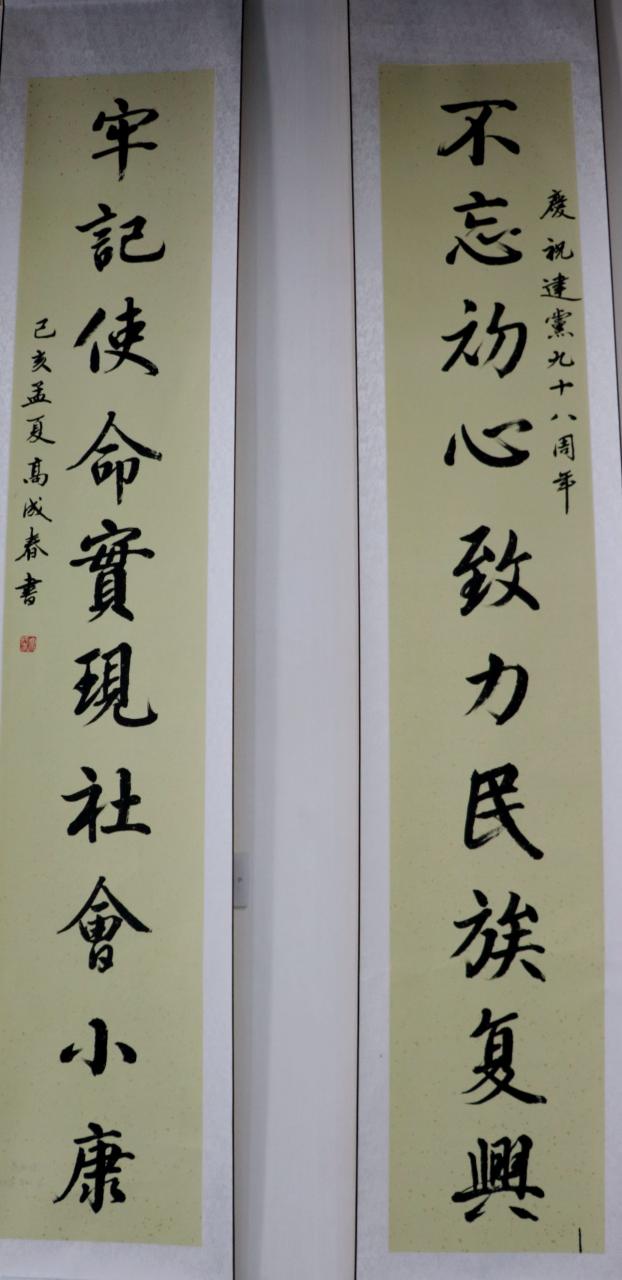 慶祝建黨九十八周年
不忘初心致力民族复興
牢記使命實現社會小康
己亥孟夏高成春書